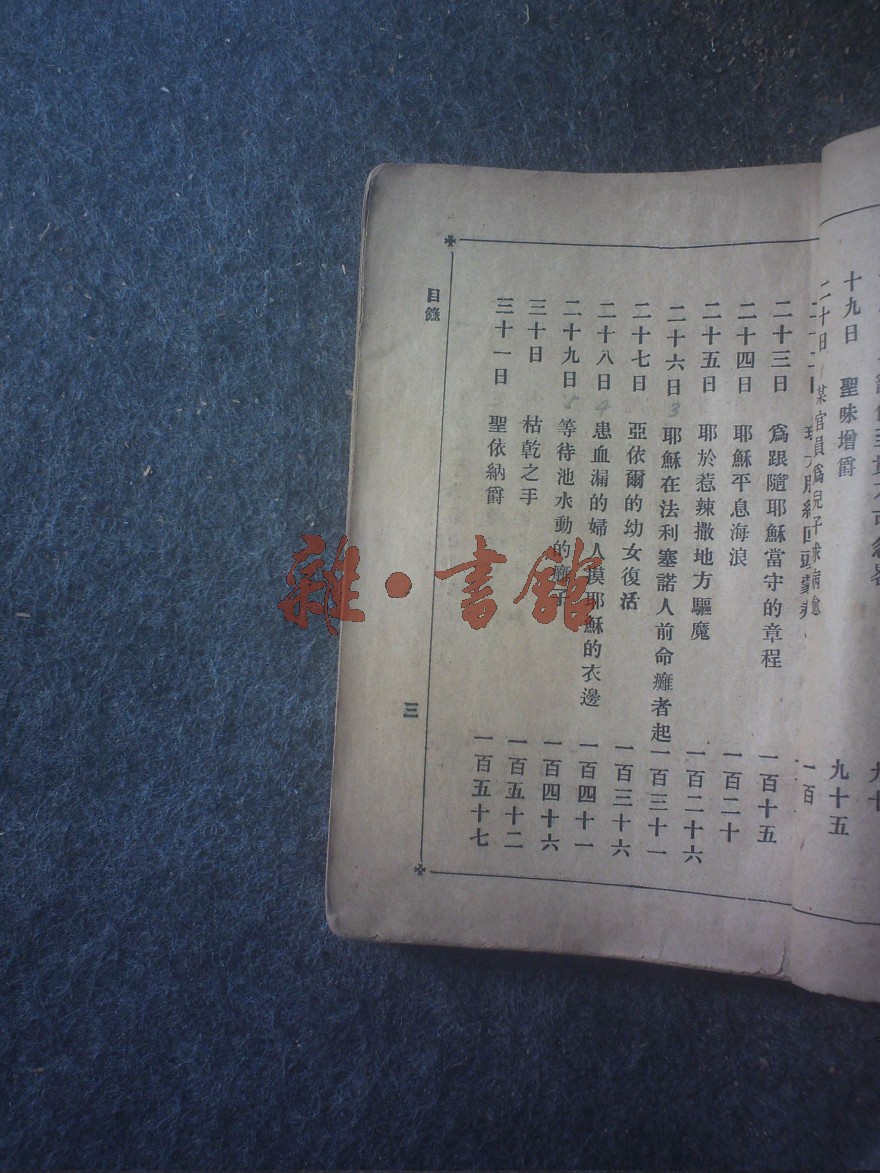 十九日 聖味增爵 九十五
二十日 某官員爲兒子求病愈 一百
二十三日 爲跟隨耶穌當守的章程 一百十五
二十四日 耶穌平息海浪 一百二十
二十五日 耶於惹辣撒地方驅魔 一百二十六
二十六日 3 耶穌在法利塞諾人前命癱者起 一百三十一
二十七日 亞依爾的幼女復活 一百三十六
二十八日 4 患血漏的婦人摸耶穌的衣邊 一百四十一
二十九日 5 等待池水動的癱子 一百四十六
三十日 枯乾之手 一百五十二
三十一日 聖依納爵 一百五十七
目錄
三
雜·書館